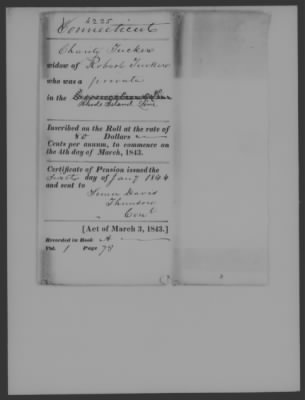 6225
Connecticut
Charity Tucker
widow of Robert Tucker
who was a private
in the
Rhode Island Line
Inscribed on the Roll at the rate of
80 Dollars
Cents per annum, to commence on
the 4th day of March, 1843.
Certificate of Pension issued the
day of Jany 1844
and sent to
David
Con
[Act of March 3, 1843.]
Recorded in Book A
Vol. 1 Page 78